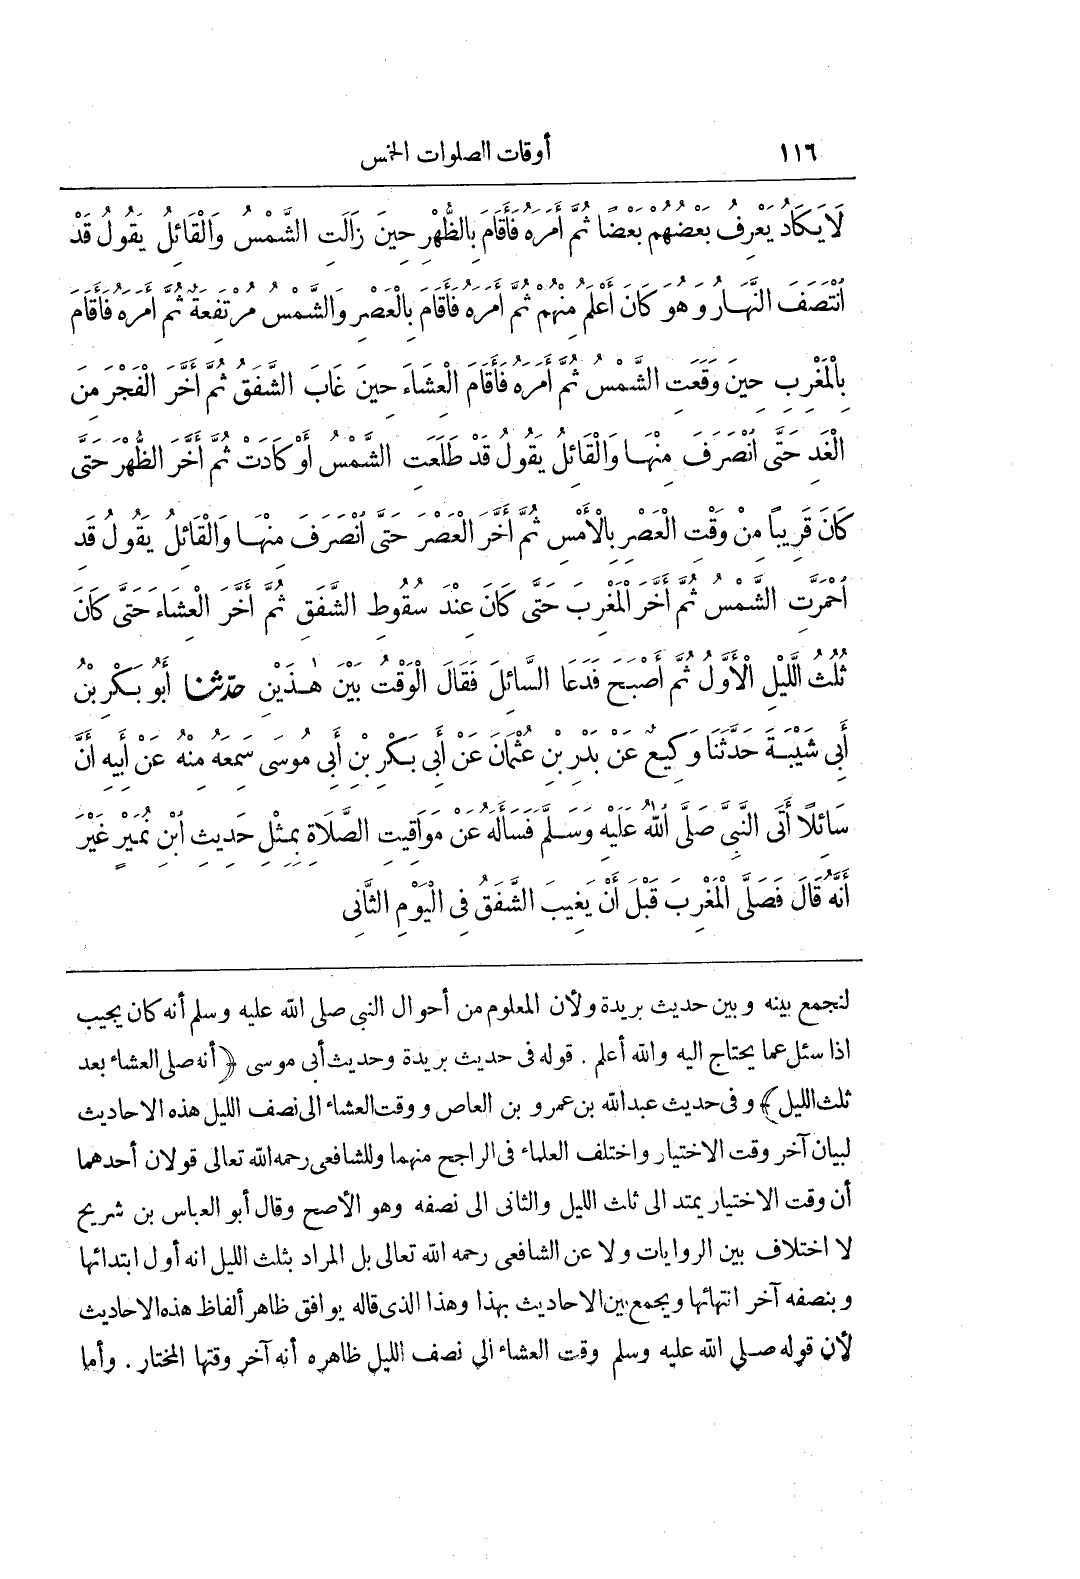 ١١٦ أوقات الصلوات الخمس
لَا يَكَادُ يَعْرِفُ بَعْضُهُمْ بَعْضًا ثُمَّ أَمَرَهُ فَأَقَامَ بِالظُّهْرِ حِينَ زَالَتِ الشَّمْسُ وَالْقَائِلُ يَقُولُ قَدْ
انْتَصَفَ النَّهَارُ وَهُوَ كَانَ أَعْلَمَ مِنْهُمْ ثُمَّ أَمَرَهُ فَأَقَامَ بِالْعَصْرِ وَالشَّمْسُ مُرْتَفِعَةٌ ثُمَّ أَمَرَهُ فَأَقَامَ
بِالْمَغْرِبِ حِينَ وَقَعَتِ الشَّمْسُ ثُمَّ أَمَرَهُ فَأَقَامَ الْعِشَاءَ حِينَ غَابَ الشَّفَقُ ثُمَّ أَخَّرَ الْفَجْرَ مِنَ
الْغَدِ حَتَّى انْصَرَفَ مِنْهَا وَالْقَائِلُ يَقُولُ قَدْ طَلَعَتِ الشَّمْسُ أَوْ كَادَتْ ثُمَّ أَخَّرَ الظُّهْرَ حَتَّى
كَانَ قَرِيبًا مِنْ وَقْتِ الْعَصْرِ بِالْأَمْسِ ثُمَّ أَخَّرَ الْعَصْرَ حَتَّى انْصَرَفَ مِنْهَا وَالْقَائِلُ يَقُولُ قَدِ
احْمَرَّتِ الشَّمْسُ ثُمَّ أَخَّرَ الْمَغْرِبَ حَتَّى كَانَ عِنْدَ سُقُوطِ الشَّفَقِ ثُمَّ أَخَّرَ الْعِشَاءَ حَتَّى كَانَ
ثُلُثُ اللَّيْلِ الْأَوَّلُ ثُمَّ أَصْبَحَ فَدَعَا السَّائِلَ فَقَالَ الْوَقْتُ بَيْنَ هٰذَيْنِ حَدَّثَنَا أَبُو بَكْرِ بْنُ
أَبِي شَيْبَةَ حَدَّثَنَا وَكِيعٌ عَنْ بَدْرِ بْنِ عُثْمَانَ عَنْ أَبِي بَكْرِ بْنِ أَبِي مُوسَى سَمِعَهُ مِنْهُ عَنْ أَبِيهِ أَنَّ
سَائِلًا أَتَى النَّبِيَّ صَلَّى اللّٰهُ عَلَيْهِ وَسَلَّمَ فَسَأَلَهُ عَنْ مَوَاقِيتِ الصَّلَاةِ بِمِثْلِ حَدِيثِ ابْنِ نُمَيْرٍ غَيْرَ
أَنَّهُ قَالَ فَصَلَّى الْمَغْرِبَ قَبْلَ أَنْ يَغِيبَ الشَّفَقُ فِي الْيَوْمِ الثَّانِي
لنجمع بينه وبين حديث بريدة ولأن المعلوم من أحوال النبى صلى الله عليه وسلم أنه كان يجيب
اذا سئل عما يحتاج اليه والله أعلم . قوله فى حديث بريدة وحديث أبى موسى ﴿أنه صلى العشاء بعد
ثلث الليل﴾ وفى حديث عبدالله بن عمرو بن العاص ووقت العشاء الى نصف الليل هذه الاحاديث
لبيان آخر وقت الاختيار واختلف العلماء فى الراجح منهما وللشافعى رحمه الله تعالى قولان أحدهما
أن وقت الاختيار يمتد الى ثلث الليل والثانى الى نصفه وهو الأصح وقال أبو العباس بن شريح
لا اختلاف بين الروايات ولا عن الشافعى رحمه الله تعالى بل المراد بثلث الليل انه أول ابتدائها
وبنصفه آخر انتهائها ويجمع بين الاحاديث بهذا وهذا الذى قاله يوافق ظاهر ألفاظ هذه الاحاديث
لأن قوله صلى الله عليه وسلم وقت العشاء الى نصف الليل ظاهره أنه آخر وقتها المختار . وأما